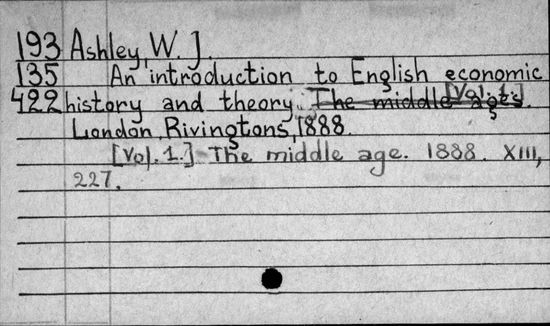 193 Ashley, W. J.
135 An introduction to English economic
422 history and theory. The middle ages. [Vol. 1.]
London, Rivingtons, 1888.
[Vol. 1.] The middle age. 1888. XIII,
227.